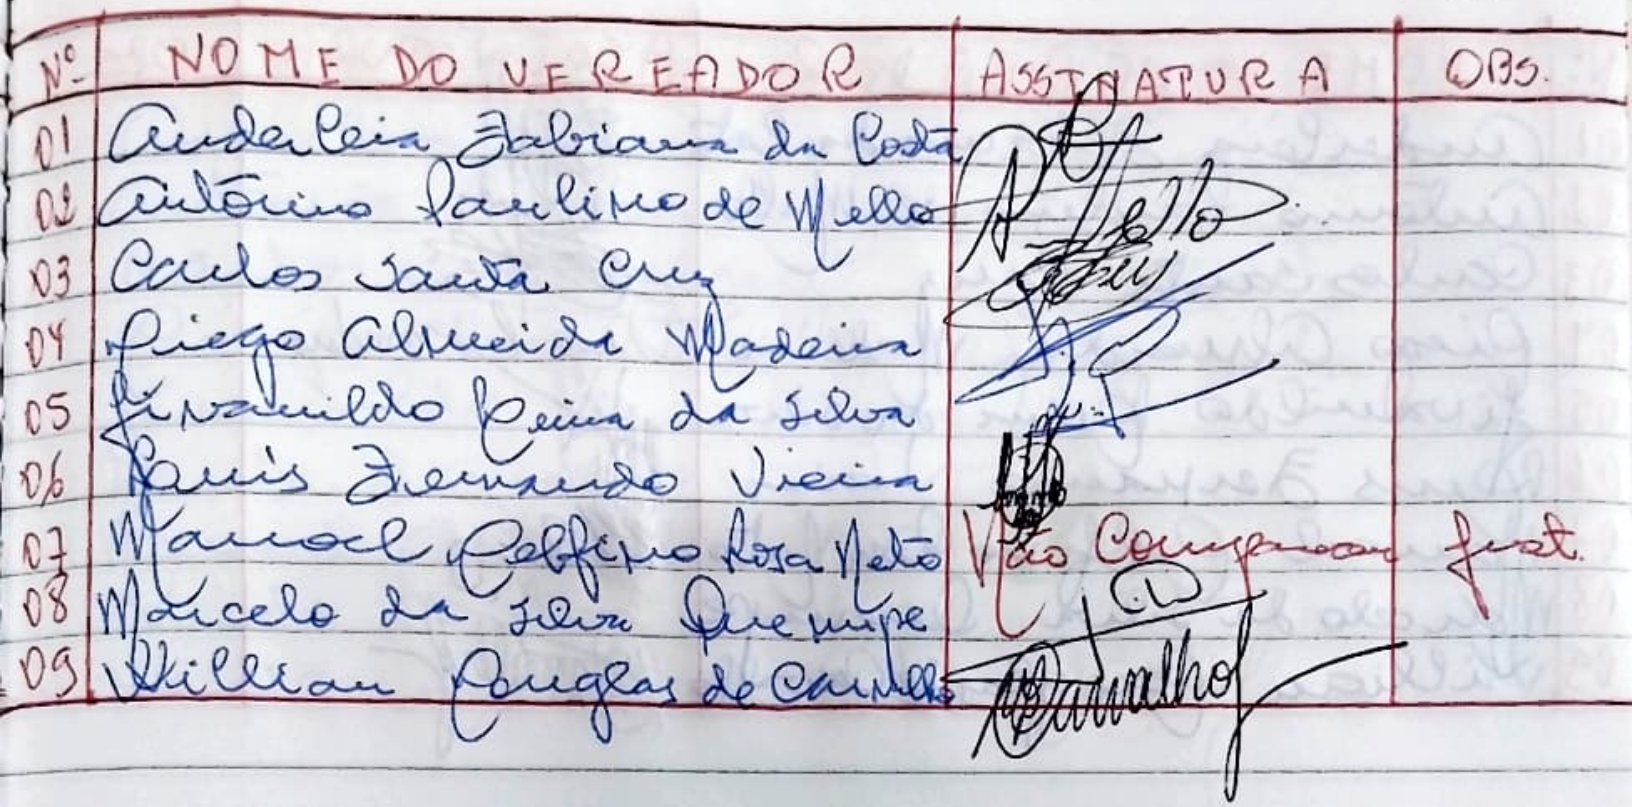 Nº NOME DO VEREADOR ASSINATURA OBS.
01 Anderleia Fabiana da Costa
02 Antônino Paulino de Mello A Mello
03 Carlos Santa Cruz
04 Diego Almeida Madeira
05 Jivanildo Peiva da Silva
06 Luis Fernando Vieira
07 Manoel Delfino Rosa Neto Não Compareceu Just.
08 Marcelo da Silva Quenupe
09 Willian Douglas de Carvalho Carvalho